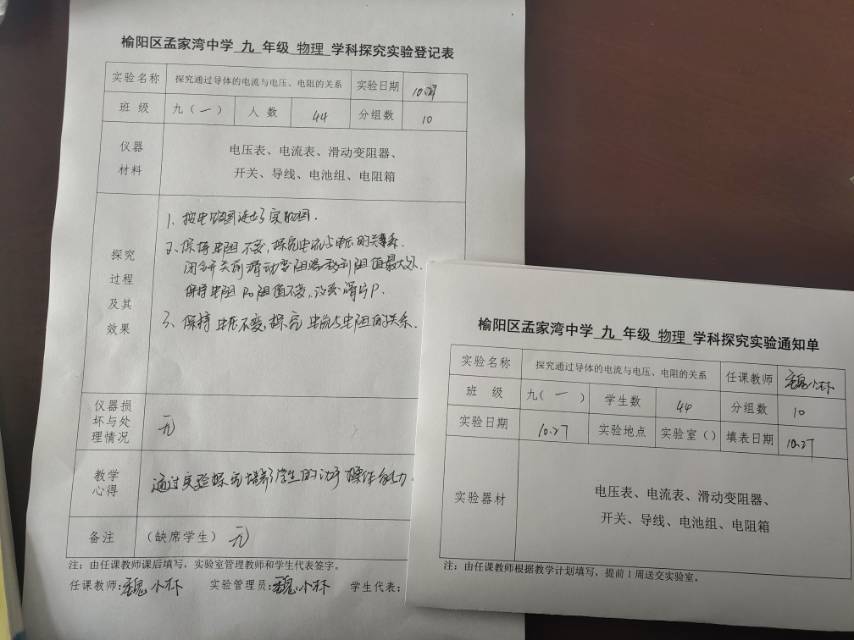 榆阳区孟家湾中学 九 年级 物理 学科探究实验登记表
实验名称 探究通过导体的电流与电压、电阻的关系 实验日期 10.27
班 级 九(一) 人 数 44 分组数 10
仪器材料 电压表、电流表、滑动变阻器、
开关、导线、电池组、电阻箱
探究
过程
及其
效果
1、按电路图连好实物图.
2、保持电阻不变,探究电流与电压的关系.
闭合开关前滑动变阻器移到阻值最大处.
保持电阻R的阻值不变,改变滑片P.
3、保持电压不变,探究电流与电阻的关系.
仪器损
坏与处
理情况
无
教学
心得
通过实验探究培养学生的动手操作能力
备注 (缺席学生) 无
注:由任课教师课后填写,实验室管理教师和学生代表签字。
任课教师:魏小林 实验管理员:魏小林 学生代表:
榆阳区孟家湾中学 九 年级 物理 学科探究实验通知单
实验名称 探究通过导体的电流与电压、电阻的关系 任课教师 魏小林
班 级 九(一) 学生数 44 分组数 10
实验日期 10.27 实验地点 实验室() 填表日期 10.27
实验器材 电压表、电流表、滑动变阻器、
开关、导线、电池组、电阻箱
注:由任课教师根据教学计划填写,提前1周送交实验室。